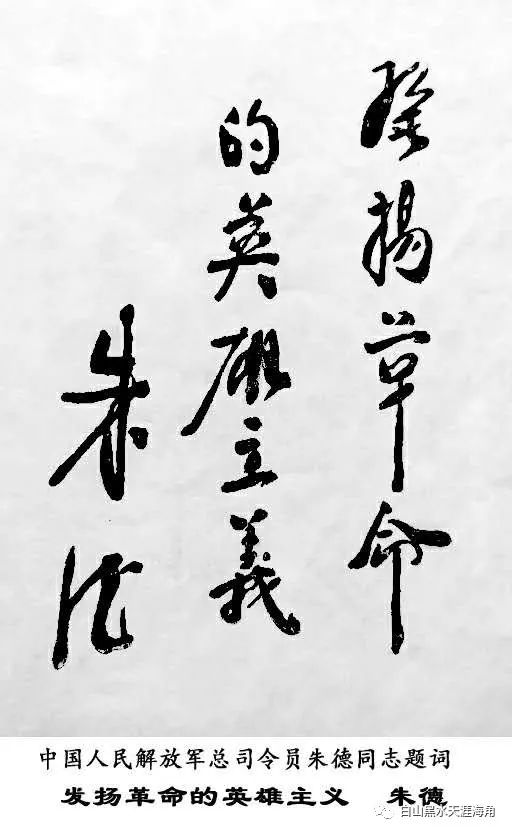 發揚革命
的英雄主義
朱德
中国人民解放军总司令员朱德同志题词
发扬革命的英雄主义 朱德
白山黑水天涯海角